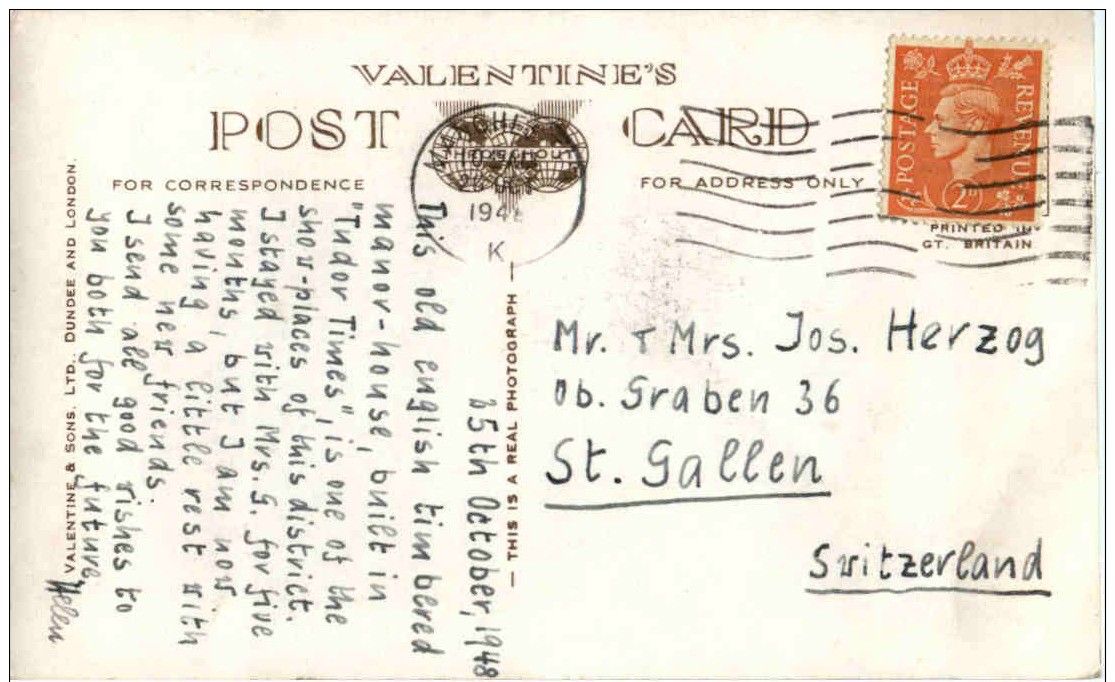 VALENTINE'S
POST CARD
FOR CORRESPONDENCE
FOR ADDRESS ONLY
POSTAGE REVENUE
2D
PRINTED IN
GT. BRITAIN
194
K
25th October, 1948
This old english timbered
manor-house, built in
"Tudor Times", is one of the
show-places of this district.
I stayed with Mrs. G. for five
months, but I am now
having a little rest with
some new friends.
I send all good wishes to
you both for the future,
Helen
VALENTINE & SONS, LTD., DUNDEE AND LONDON.
— THIS IS A REAL PHOTOGRAPH —
Mr. + Mrs. Jos. Herzog
Ob. Graben 36
St. Gallen
Switzerland